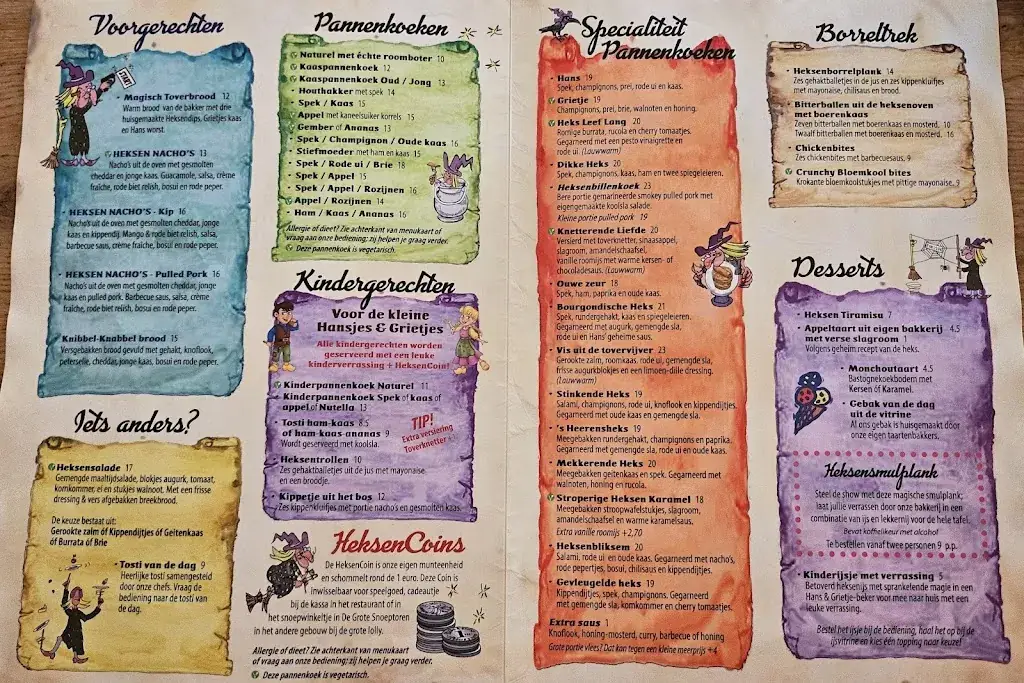 Voorgerechten
START
• Magisch Toverbrood 12
Warm brood van de bakker met drie
huisgemaakte Heksendips, Grietjes kaas
en Hans worst.
HEKSEN NACHO'S 13
Nacho's uit de oven met gesmolten
cheddar en jonge kaas. Guacamole, salsa, crème
fraîche, rode biet relish, bosui en rode peper.
• HEKSEN NACHO'S - Kip 16
Nacho's uit de oven met gesmolten cheddar, jonge
kaas en kippendij. Mango & rode biet relish, salsa,
barbecue saus, crème fraîche, bosui en rode peper.
• HEKSEN NACHO'S - Pulled Pork 16
Nacho's uit de oven met gesmolten cheddar, jonge
kaas en pulled pork. Barbecue saus, salsa, crème
fraîche, rode biet relish, bosui en rode peper.
Knibbel-Knabbel brood 15
Versgebakken brood gevuld met gehakt, knoflook,
peterselie, cheddar, jonge kaas, bosui en rode peper.
Iets anders?
Heksensalade 17
Gemengde maaltijdsalade, blokjes augurk, tomaat,
komkommer, ei en stukjes walnoot. Met een frisse
dressing & vers afgebakken breekbrood.
De keuze bestaat uit:
Gerookte zalm óf Kippendijtjes óf Geitenkaas
óf Burrata óf Brie
• Tosti van de dag 9
Heerlijke tosti samengesteld
door onze chefs. Vraag de
bediening naar de tosti van
de dag.
Pannenkoeken
Naturel met échte roomboter 10
Kaaspannenkoek 12
Kaaspannenkoek Oud / Jong 13
• Houthakker met spek 14
• Spek / Kaas 15
Appel met kaneelsuiker korrels 15
Gember of Ananas 13
• Spek / Champignon / Oude kaas 16
• Stiefmoeder met ham en kaas 15
• Spek / Rode ui / Brie 18
• Spek / Appel 15
• Spek / Appel / Rozijnen 16
Appel / Rozijnen 14
• Ham / Kaas / Ananas 16
Allergie of dieet? Zie achterkant van menukaart of
vraag aan onze bediening; zij helpen je graag verder.
Deze pannenkoek is vegetarisch.
Kindergerechten
Voor de kleine
Hansjes & Grietjes
Alle kindergerechten worden
geserveerd met een leuke
kinderverrassing + HeksenCoin!
Kinderpannenkoek Naturel 11
Kinderpannenkoek Spek of kaas of
appel of Nutella 13
• Tosti ham-kaas 8.5
of ham-kaas-ananas 9
Wordt geserveerd met koolsla.
TIP!
Extra versiering
Toverknetter
• Heksentrollen 10
Zes gehaktballetjes uit de jus met mayonaise
en een broodje.
• Kippetje uit het bos 12
Zes kippenkluifjes met portie nacho's en gesmolten kaas.
HeksenCoins
De HeksenCoin is onze eigen munteenheid
en schommelt rond de 1 euro. Deze Coin is
inwisselbaar voor speelgoed, cadeautje
bij de kassa in het restaurant of in
het snoepwinkeltje in De Grote Snoeptoren
in het andere gebouw bij de grote lolly.
Allergie of dieet? Zie achterkant van menukaart
of vraag aan onze bediening; zij helpen je graag verder.
Deze pannenkoek is vegetarisch.
Specialiteit
Pannenkoeken
• Hans 19
Spek, champignons, prei, rode ui en kaas.
Grietje 19
Champignons, prei, brie, walnoten en honing.
Heks Leef Lang 20
Romige burrata, rucola en cherry tomaatjes.
Gegarneerd met een pesto vinaigrette en
rode ui. (Lauwwarm)
• Dikke Heks 20
Spek, champignons, kaas, ham en twee spiegeleieren.
• Heksenbillenkoek 23
Bere portie gemarineerde smokey pulled pork met
eigengemaakte koolsla salade.
Kleine portie pulled pork 19
Knetterende Liefde 20
Versierd met toverknetter, sinaasappel,
slagroom, amandelschaafsel,
vanille roomijs met warme kersen- of
chocoladesaus. (Lauwwarm)
• Ouwe zeur 18
Spek, ham, paprika en oude kaas.
• Bourgondische Heks 21
Spek, rundergehakt, kaas en spiegeleieren.
Gegarneerd met augurk, gemengde sla,
rode ui en Hans' geheime saus.
• Vis uit de tovervijver 23
Gerookte zalm, roomkaas, rode ui, gemengde sla,
frisse augurkblokjes en een limoen-dille dressing.
(Lauwwarm)
• Stinkende Heks 19
Salami, champignons, rode ui, knoflook en kippendijtjes.
Gegarneerd met oude kaas en gemengde sla.
• 's Heerensheks 19
Meegebakken rundergehakt, champignons en paprika.
Gegarneerd met gemengde sla, rode ui en oude kaas.
• Mekkerende Heks 20
Meegebakken geitenkaas en spek. Gegarneerd met
walnoten, honing en rucola.
Stroperige Heksen Karamel 18
Meegebakken stroopwafelstukjes, slagroom,
amandelschaafsel en warme karamelsaus.
Extra vanille roomijs +2,70
• Heksenbliksem 20
Salami, rode ui en oude kaas. Gegarneerd met nacho's,
rode pepertjes, bosui, chilisaus en kippendijtjes.
• Gevleugelde heks 19
Kippendijtjes, spek, champignons. Gegarneerd
met gemengde sla, komkommer en cherry tomaatjes.
Extra saus 1
Knoflook, honing-mosterd, curry, barbecue of honing
Grote portie vlees? Dat kan tegen een kleine meerprijs +4
Borreltrek
• Heksenborrelplank 14
Zes gehaktballetjes in de jus en zes kippenkluifjes
met mayonaise, chilisaus en brood.
• Bitterballen uit de heksenoven
met boerenkaas
Zeven bitterballen met boerenkaas en mosterd. 10
Twaalf bitterballen met boerenkaas en mosterd. 16
• Chickenbites
Zes chickenbites met barbecuesaus. 9
Crunchy Bloemkool bites
Krokante bloemkoolstukjes met pittige mayonaise. 9
Desserts
• Heksen Tiramisu 7
• Appeltaart uit eigen bakkerij 4.5
met verse slagroom 1
Volgens geheim recept van de heks.
• Monchoutaart 4.5
Bastognekoekbodem met
Kersen óf Karamel.
• Gebak van de dag
uit de vitrine
Al ons gebak is huisgemaakt door
onze eigen taartenbakkers.
Heksensmulplank
Steel de show met deze magische smulplank;
laat jullie verrassen door onze bakkerij in een
combinatie van ijs en lekkernij voor de hele tafel.
Bevat koffielikeur met alcohol
Te bestellen vanaf twee personen 9 p.p.
• Kinderijsje met verrassing 5
Betoverd heksenijs met sprankelende magie in een
Hans & Grietje-beker voor mee naar huis met een
leuke verrassing.
Bestel het ijsje bij de bediening, haal het op bij de
ijsvitrine en kies één topping naar keuze!